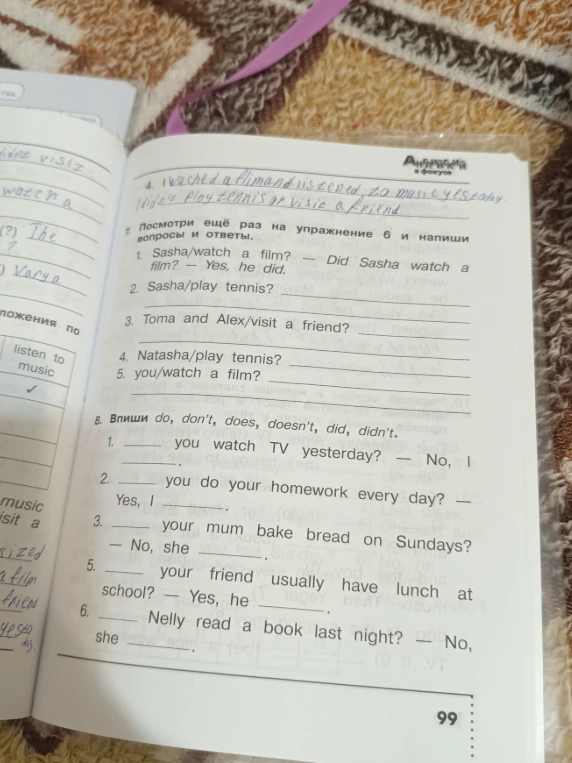 didnt visiz
watch a
(?) The
?
) Varya
ложения по
listen to
music
✓
music
isit a
a film
friend
Английский
в фокусе
4. I wached a flim and listened to music yesterday.
I didn't play tennis or visit a friend.
7. Посмотри ещё раз на упражнение 6 и напиши
вопросы и ответы.
1. Sasha/watch a film? — Did Sasha watch a
film? — Yes, he did.
2. Sasha/play tennis? ____
3. Toma and Alex/visit a friend?
____
4. Natasha/play tennis? ____
5. you/watch a film? ____
____
8. Впиши do, don't, does, doesn't, did, didn't.
1. ____ you watch TV yesterday? — No, I
____.
2. ____ you do your homework every day? —
Yes, I ____.
3. ____ your mum bake bread on Sundays?
— No, she ____.
5. ____ your friend usually have lunch at
school? — Yes, he ____.
6. ____ Nelly read a book last night? — No,
she ____.
99